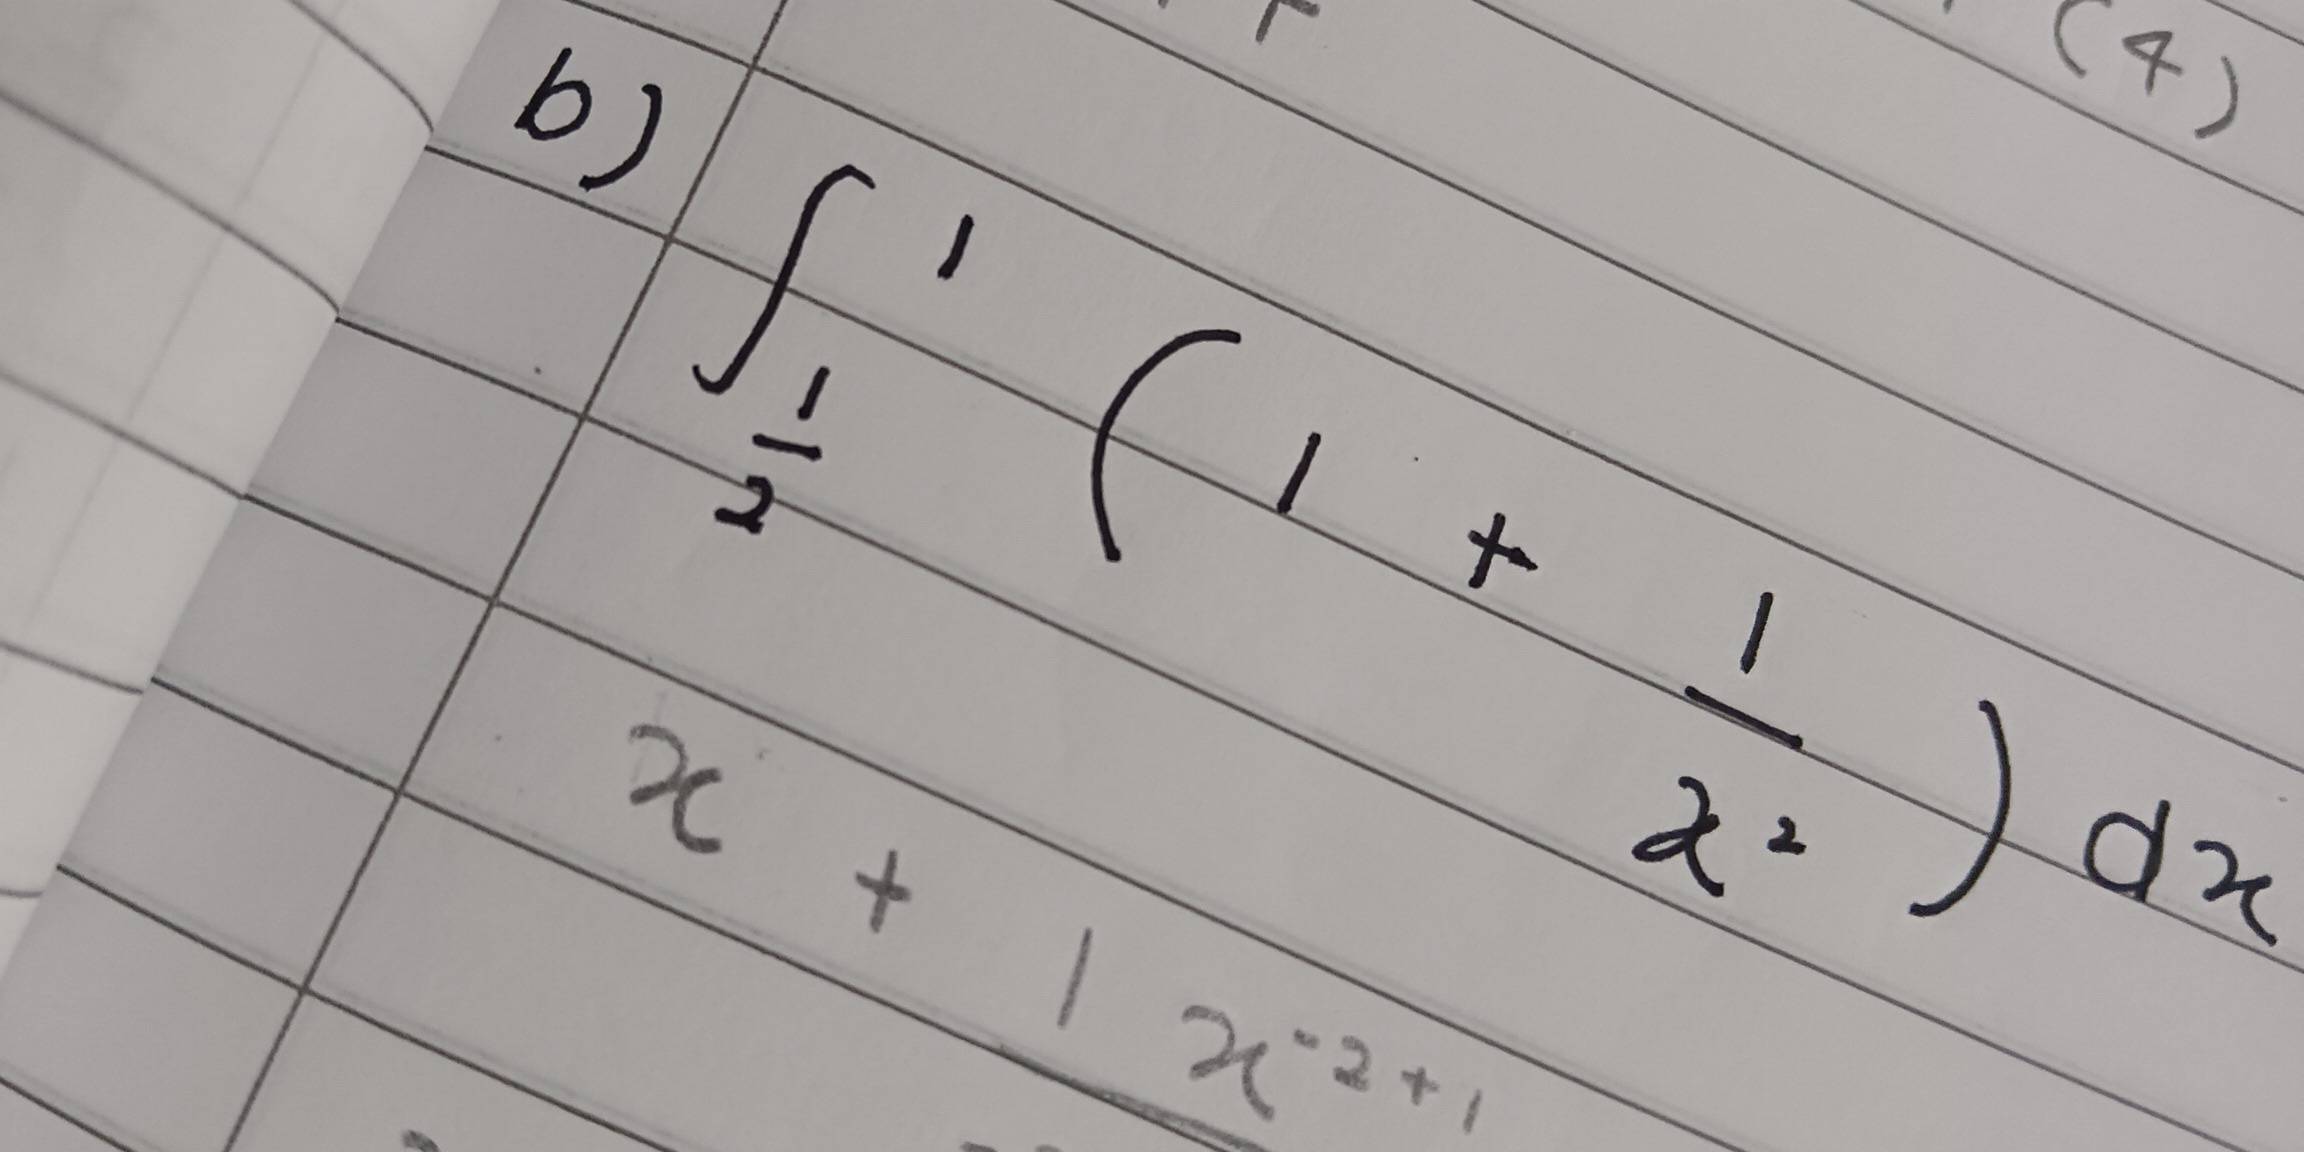 (4)
b) ∫_{1/2}^{1} (1 + 1/x²) dx
x + 1 x^{-2+1}